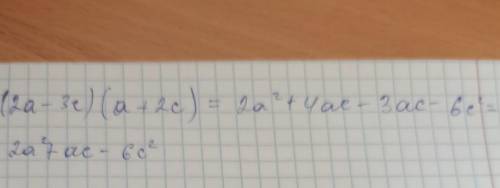 (2a - 3c)(a + 2c) = 2a² + 4ac - 3ac - 6c² =
2a² + ac - 6c²